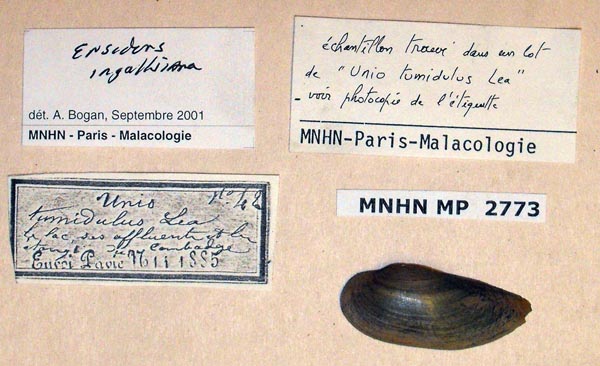 Ensidens
ingallsiana
dét. A. Bogan, Septembre 2001
MNHN - Paris - Malacologie
échantillon trouvé dans un lot
de "Unio tumidulus Lea"
- voir photocopie de l'étiquette
MNHN-Paris-Malacologie
Unio No 42
tumidulus Lea
le lac, ses affluents et les
étangs Cambodge
Pavie 1885
MNHN MP 2773